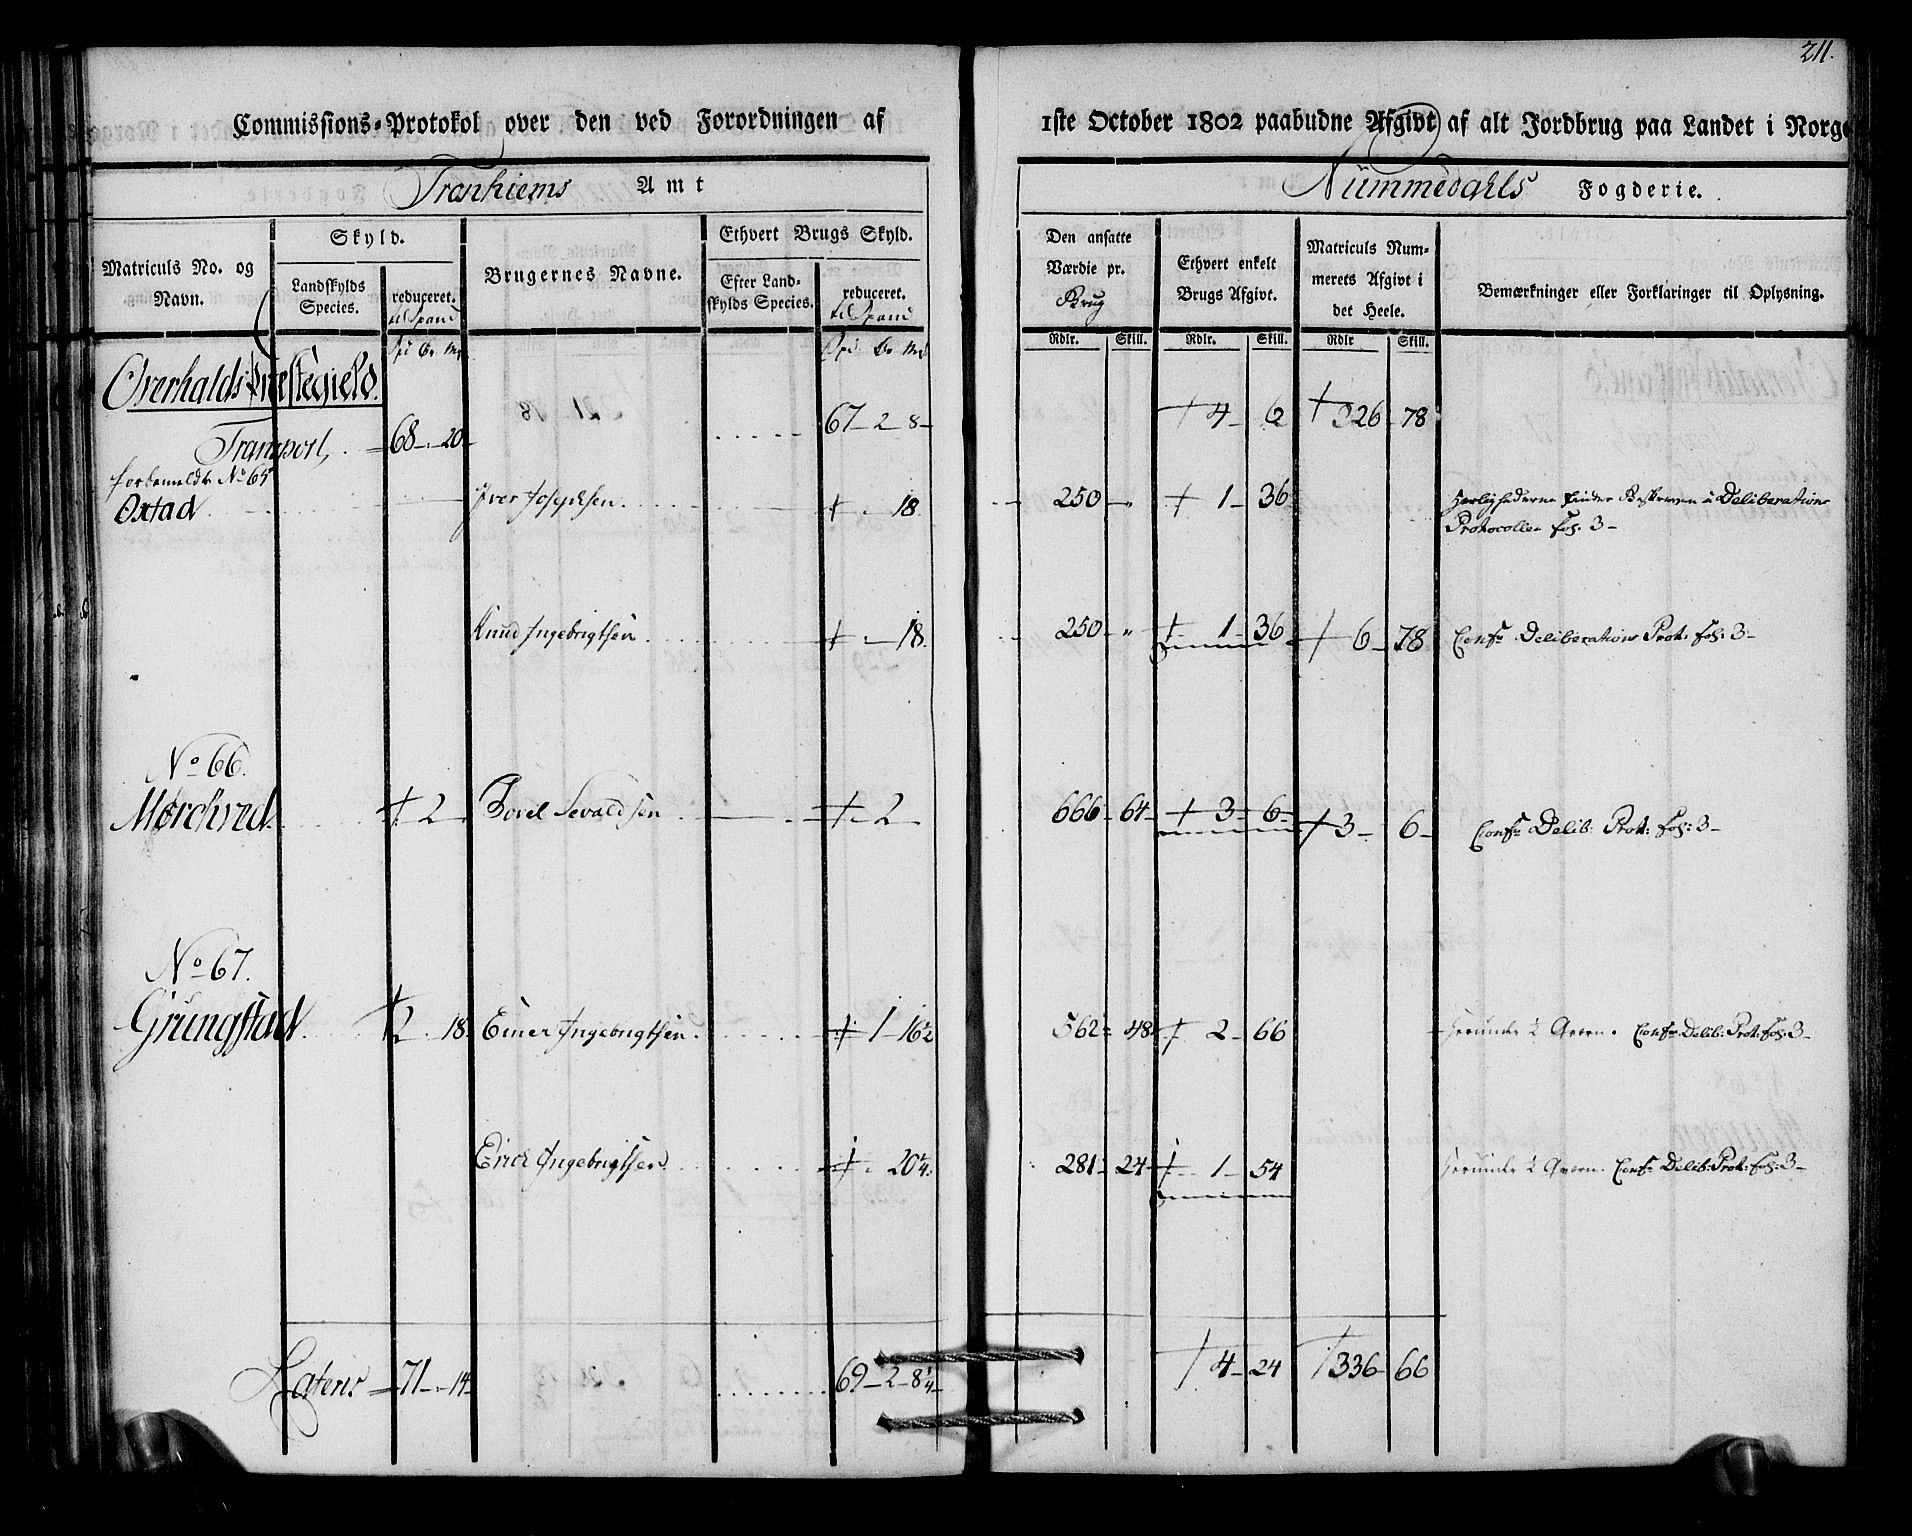 211.
Commissions-Protokol over den ved Forordningen af 1ste October 1802 paabudne Afgivt af alt Jordbrug paa Landet i Norge
Tronhiems Amt
Nummedahls Fogderie.
Matriculs No. og Navn.
Skyld.
Landskylds Species.
reduceret. til Spand
Brugernes Navne.
Ethvert Brugs Skyld.
Efter Landskylds Species.
reduceret. til Spand
Den ansatte Værdie pr. Brug
Ethvert enkelt Brugs Afgivt.
Matriculs Nummerets Afgivt i det Heele.
Bemærkninger eller Forklaringer til Oplysning.
Spd Ør Mk
Spd Ør Mk
Rdlr. Skill. Rdlr. Skill. Rdlr Skill.
Overhalds Præstegield.
Transport, 68 - 20 67 - 2 - 8 4 - 62 326 - 78
forbemeldte No 65
Oxtad Iver Josephsen 18 250 - " 1 - 36 Herlighederne findes Beskreven i Deliberations
Protocollen Fol: 3 -
Knud Ingebrigtsen 18. 250 - " 1 - 36 6 - 78 Confr Deliberations Prot: Fol: 3 -
No 66.
Mørchved 2 Povel Sevaldsen 2 666 - 64 3 - 6 3 - 6 Confr Delib: Prot: Fol: 3 -
No 67.
Grungstad 2 . 18. Einer Ingebrigtsen 1 - 16½ 562 - 48 2 - 66 Confr Delib: Prot: Fol: 3 -
Erich Ingebrigtsen 20¼. 281 - 24 1 - 54 Confr Delib: Prot: Fol: 3 -
Lateris 71 - 14 69 - 2 - 8¼ 4 - 24 336 - 66